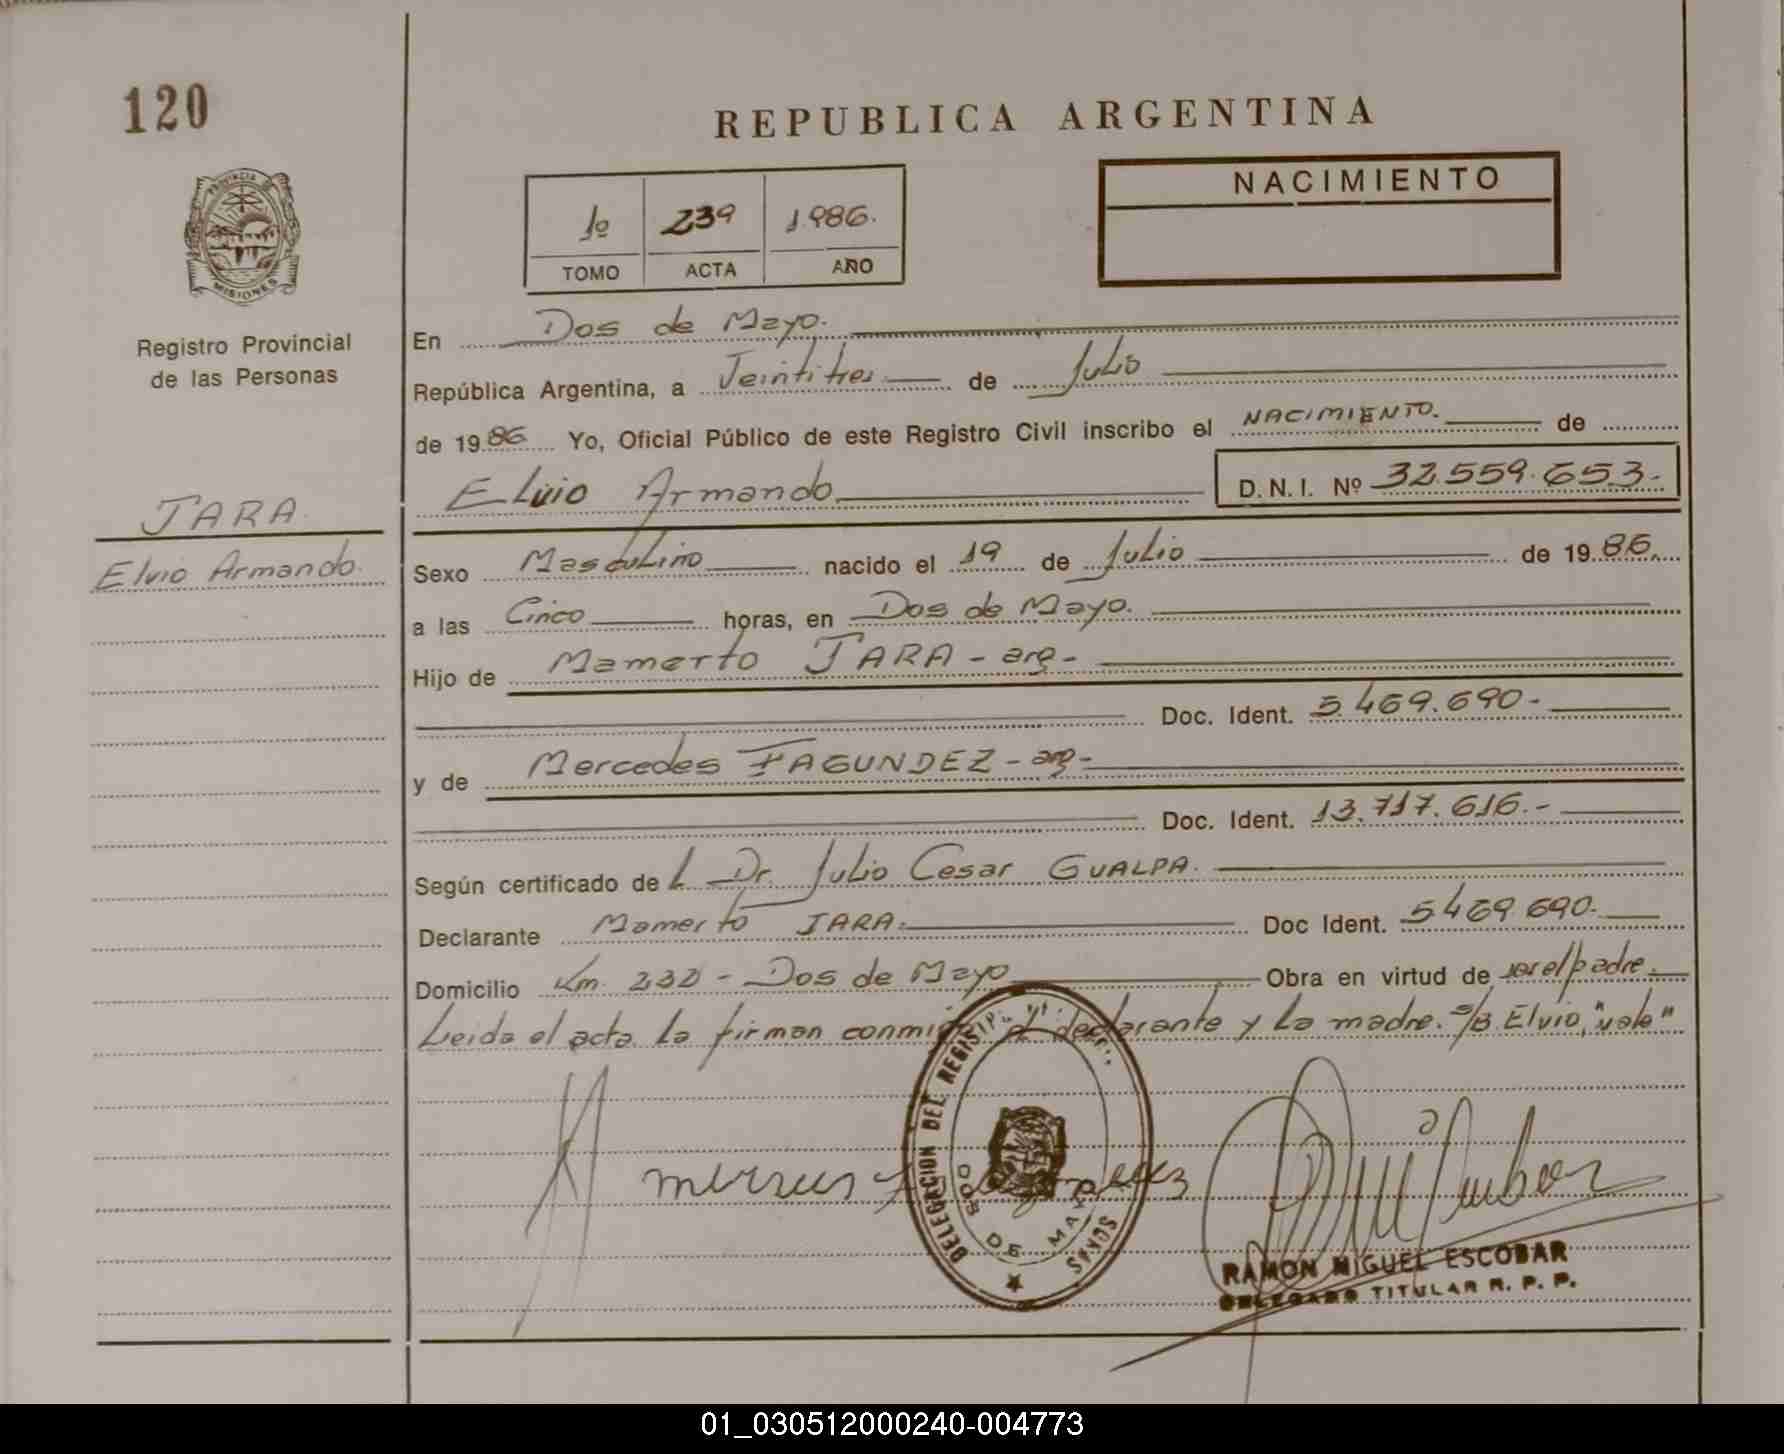 120
REPUBLICA ARGENTINA
PROVINCIA
MISIONES
1º 239 1.986.
TOMO ACTA AÑO
NACIMIENTO
Registro Provincial
de las Personas
JARA
Elvio Armando.
En Dos de Mayo.
República Argentina, a Veintitres de Julio
de 1986 Yo, Oficial Público de este Registro Civil inscribo el NACIMIENTO. de
Elvio Armando D.N.I. Nº 32.559.653.-
Sexo Masculino nacido el 19 de Julio de 1986.
a las Cinco horas, en Dos de Mayo.
Hijo de Mamerto JARA - arg-
Doc. Ident. 5.469.690-
y de Mercedes FAGUNDEZ - arg-
Doc. Ident. 13.717.616.-
Según certificado del Dr. Julio Cesar GUALPA.
Declarante Mamerto JARA. Doc Ident. 5469.690.
Domicilio Km. 232 - Dos de Mayo Obra en virtud de ser el padre.
Leida el acta la firman conmigo el declarante y la madre. S/B. Elvio, "vale"
DELEGACION DEL REGIST
DOS DE MAYO
RAMON MIGUEL ESCOBAR
DELEGADO TITULAR R. P. P.
01_030512000240-004773